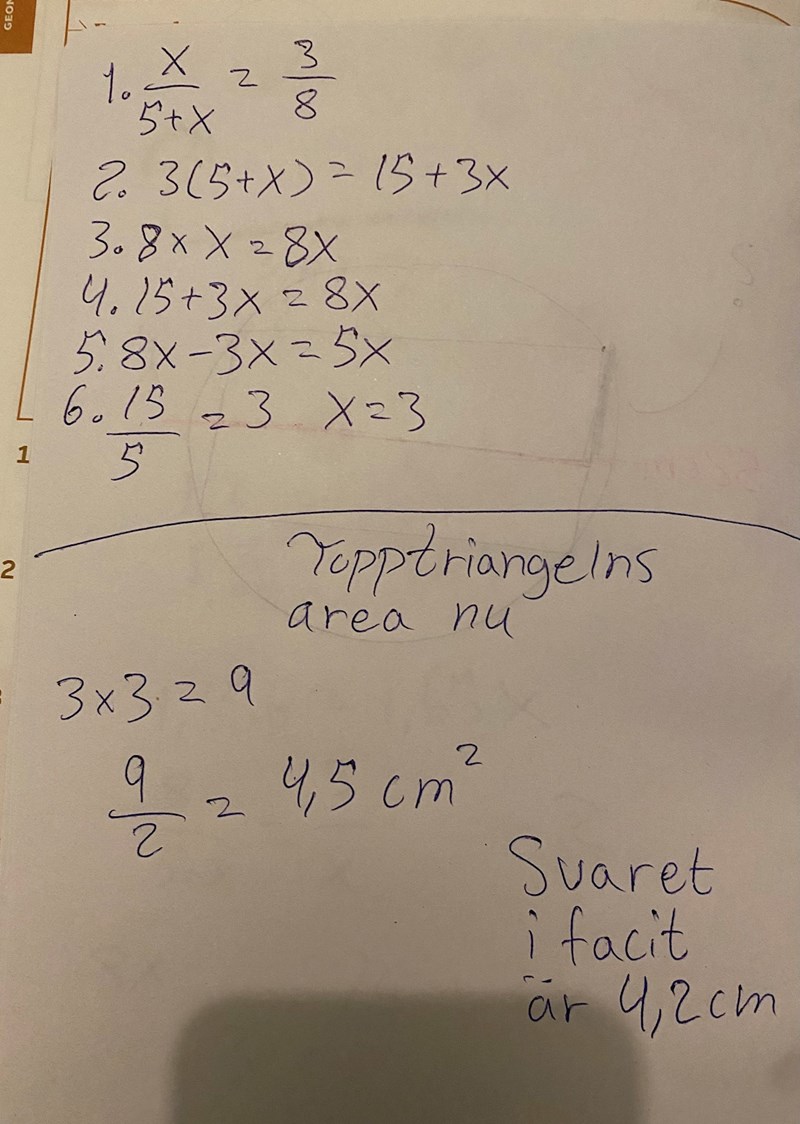 GEON
1. x/5+x = 3/8
2. 3(5+x) = 15+3x
3. 8 × x = 8x
4. 15+3x = 8x
5. 8x-3x = 5x
6. 15/5 = 3 x=3
1
2
Topptriangelns
area nu
3×3 = 9
9/2 = 4,5 cm²
Svaret
i facit
är 4,2cm